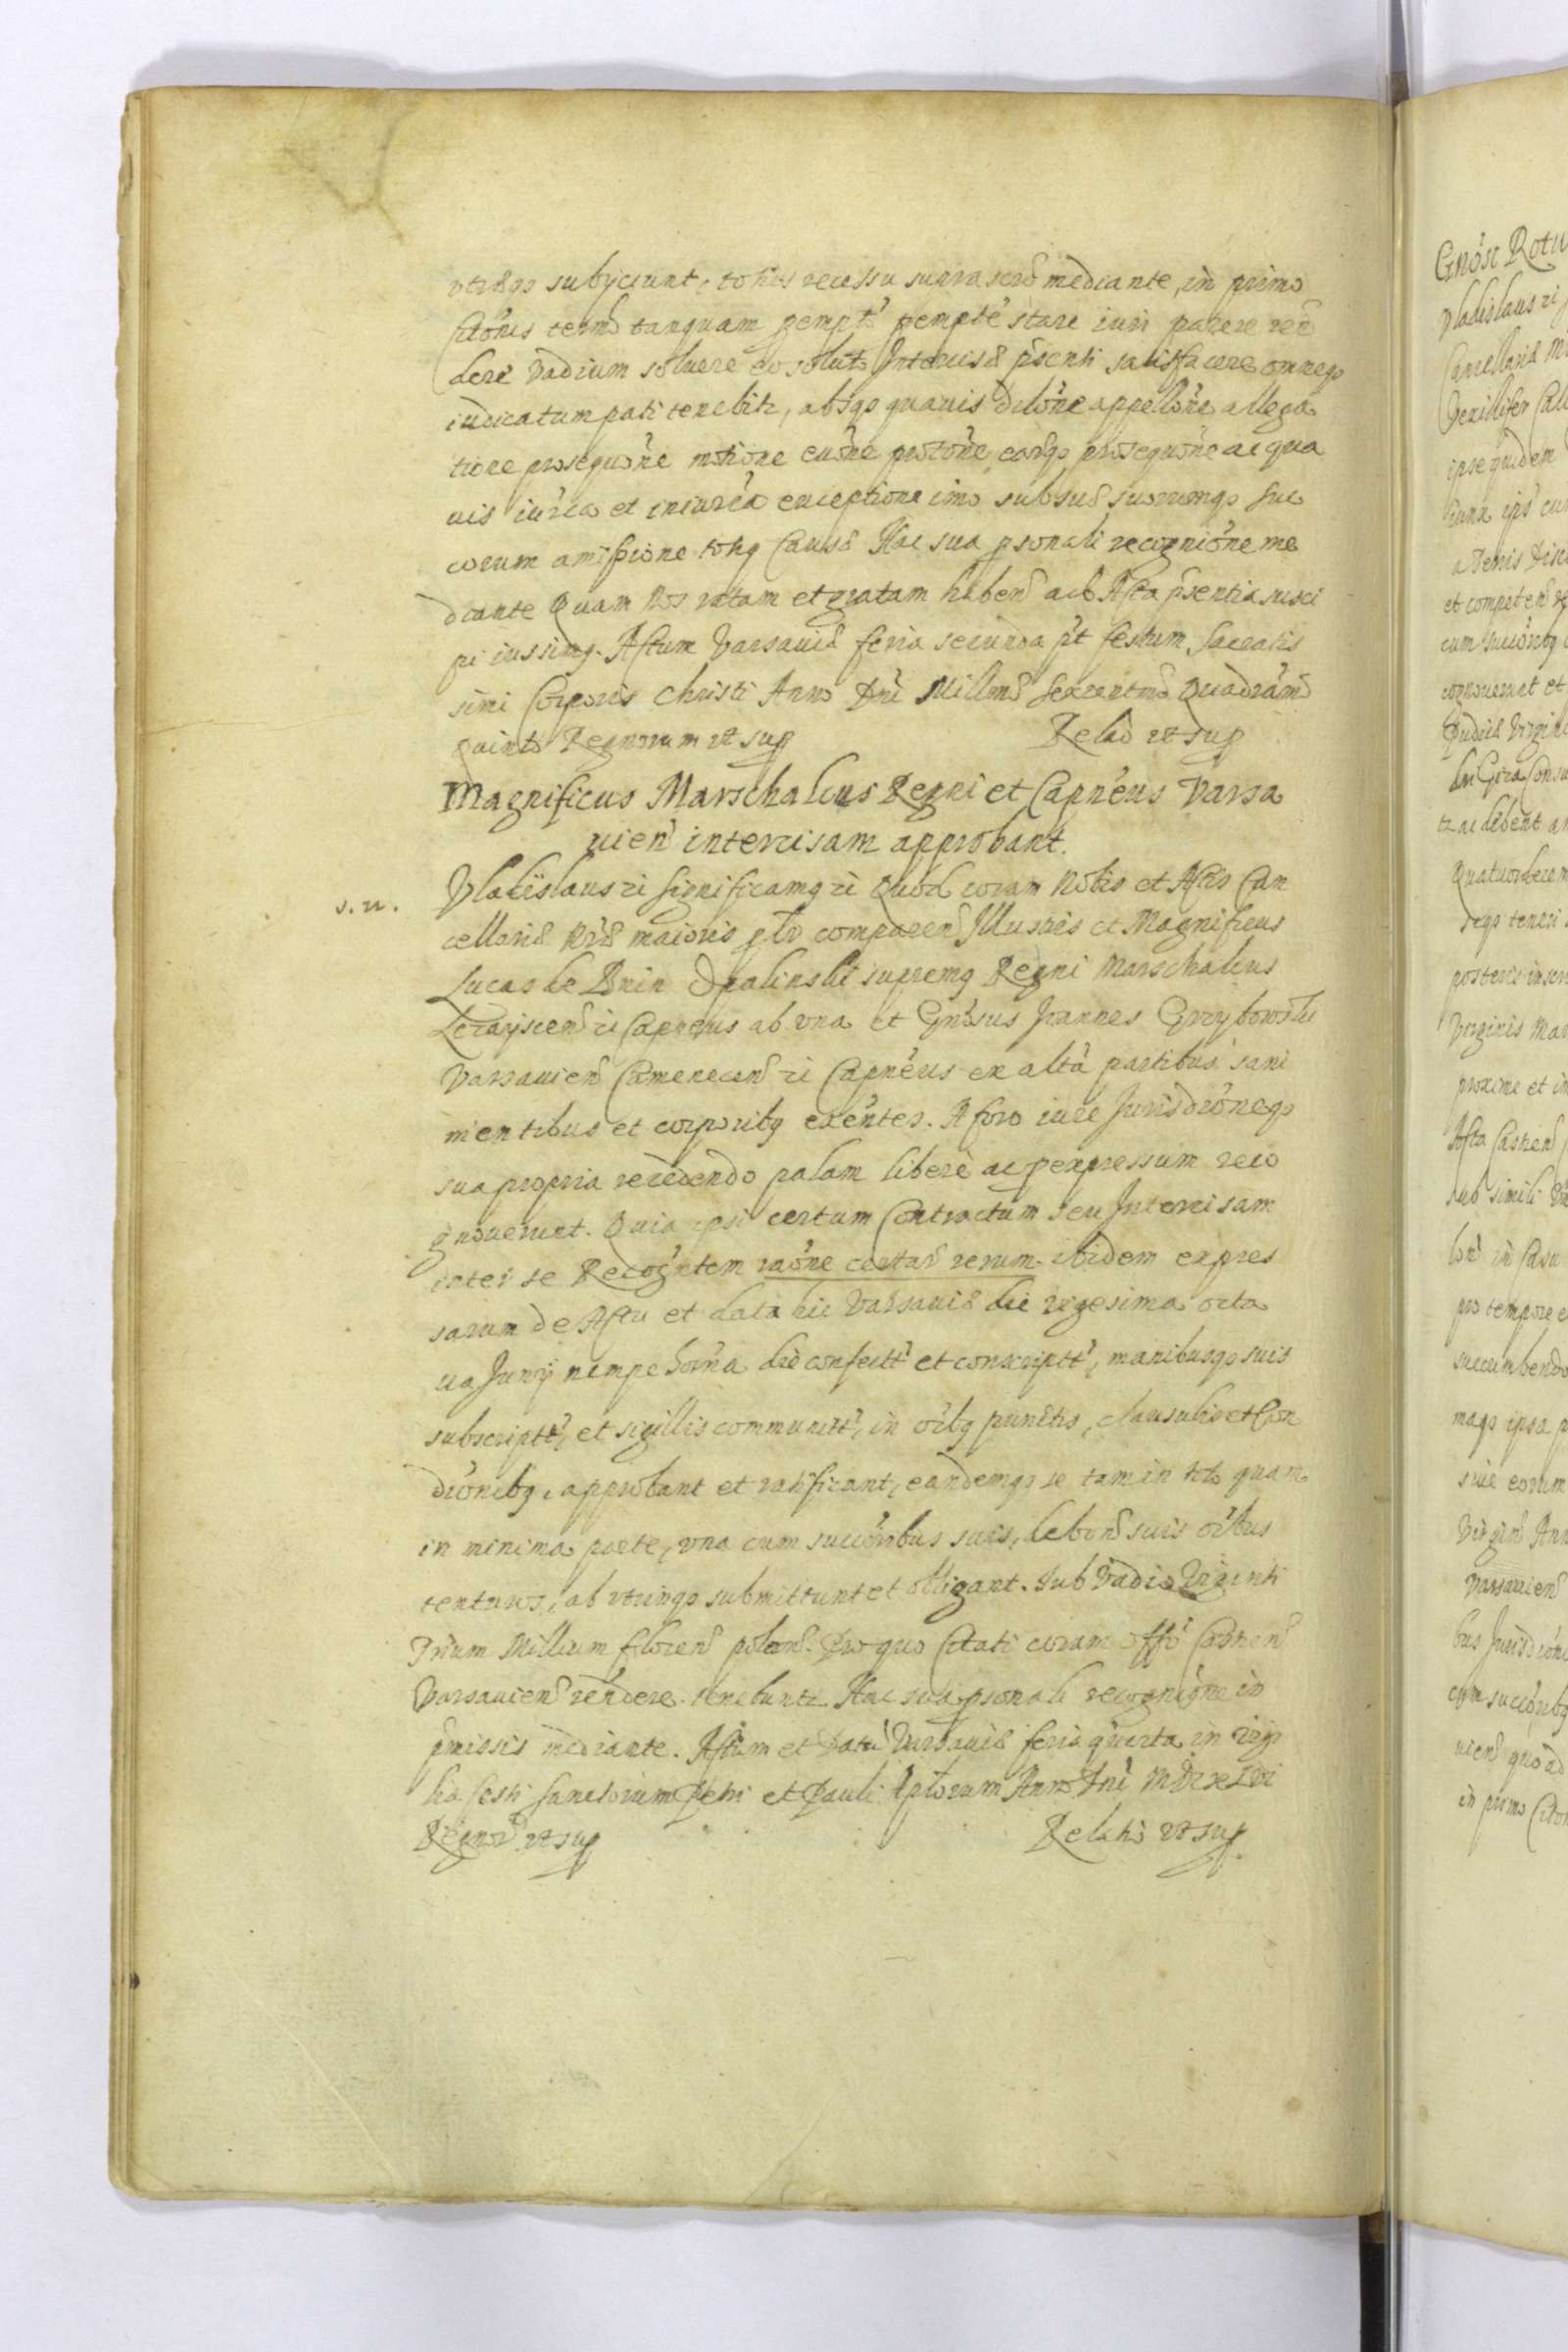 subijciunt, toties recessu suprascrō mediante, in primo
Citōnis termō tanquam pempt͛o pempte stare iuri parere ren
dere vadium soluere eo soluto Intercisæ pŝenti satisfacere omneqȝ
iudicatum pati tenebitr, absqȝ quauis dilōne appellōne allega
tione prosequōne motione euōne protōne earqȝ prosequōne ac qua
uis iurea et iniurea exceptione imo sub suæ suorumqȝ suc
corum amissione totiq Causæ Hac sua psonali recognione me
diante Quam Nos ratam et gratam haben̄ acb Acta pŝentia susci
pi iussimq. Actum Varsauiæ feria secunda pt festum Sacratis
simi Corporis Christi Anno Dni Millmō Sexcentmō Quadrām̄
quinto Regnorum vt sup Relāo vt sup
Magnificus Marschalcus Regni et Capnēus Varsa
uien̄ intercisam approbant.
s. n. Vladislaus zi significamq zi Quod coram Nobis et Actis Can
cellariæ Nræ maioris pītr comparen̄ Illustris et Magnificus
Lucas de Bnin Opalinski supremq Regni Marschalcus
Lezayscen̄ zi Capneus ab vna et Gnōsus Joannes Grzybowski
Varsauien̄ Camenecen̄ zi Capnēus ex altā partibus sani
mentibus et corporibq exēntes. A foro iure Jurisdiōneqȝ
sua propria recedendo palam libere ac pexpressum reco
gnouerunt. Quia ipsi certum Contractum seu Intercisam
inter se Recogn̄tem raōne certar̄ rerum ibidem expres
sarum de Actu et data hic Varsauiæ die vigesima octa
ua Junij nempe hōrna die confectt͛ et conscriptt͛, manibusqȝ suis
subscriptt͛, et sigillis communitt͛, in oībq punctis, clausulis et Con
diōnibq, approbant et ratificant, eandemqȝ se tam in toto quam
in minima parte, vna cum succōribus suis, de bon̄ suis oībus
tenturos, ab vtrinqȝ submittunt et obligant. Sub Vadio Viginti
Trium Millium floren̄ polon̄. Pro quo Citati coram offō Castren̄
Varsauien̄ rēndere tenebuntr. Hac sua psonali recognione in
pmissis mediante. Actum et Datū Varsauiæ feria quarta in vigi
lia festi Sanctorum Petri et Pauli Aptōrum Anno Dni MDCXLVI
Regnor̄ vt sup Relatio vt sup